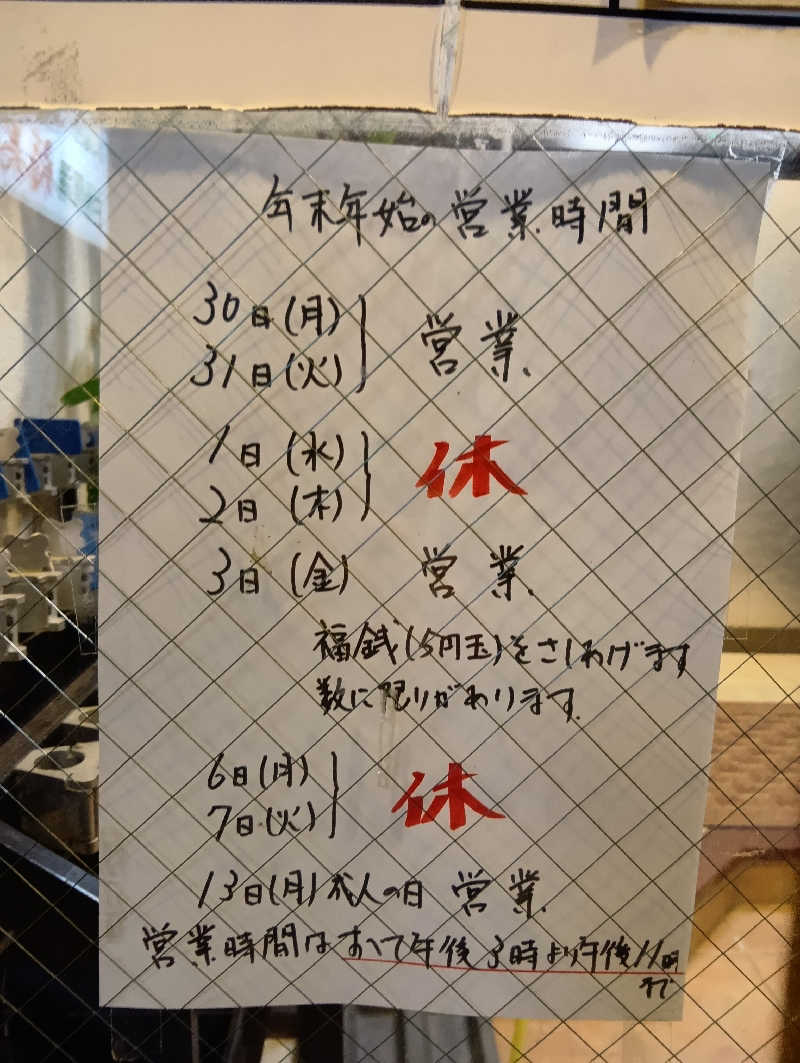 年末年始の営業時間
30日(月)
31日(火)
営業
1日(水)
2日(木)
休
3日(金) 営業
福銭(5円玉)をさしあげます
数に限りがあります
6日(月)
7日(火)
休
13日(月)成人の日 営業
営業時間はすべて午後3時より午後11時
まで